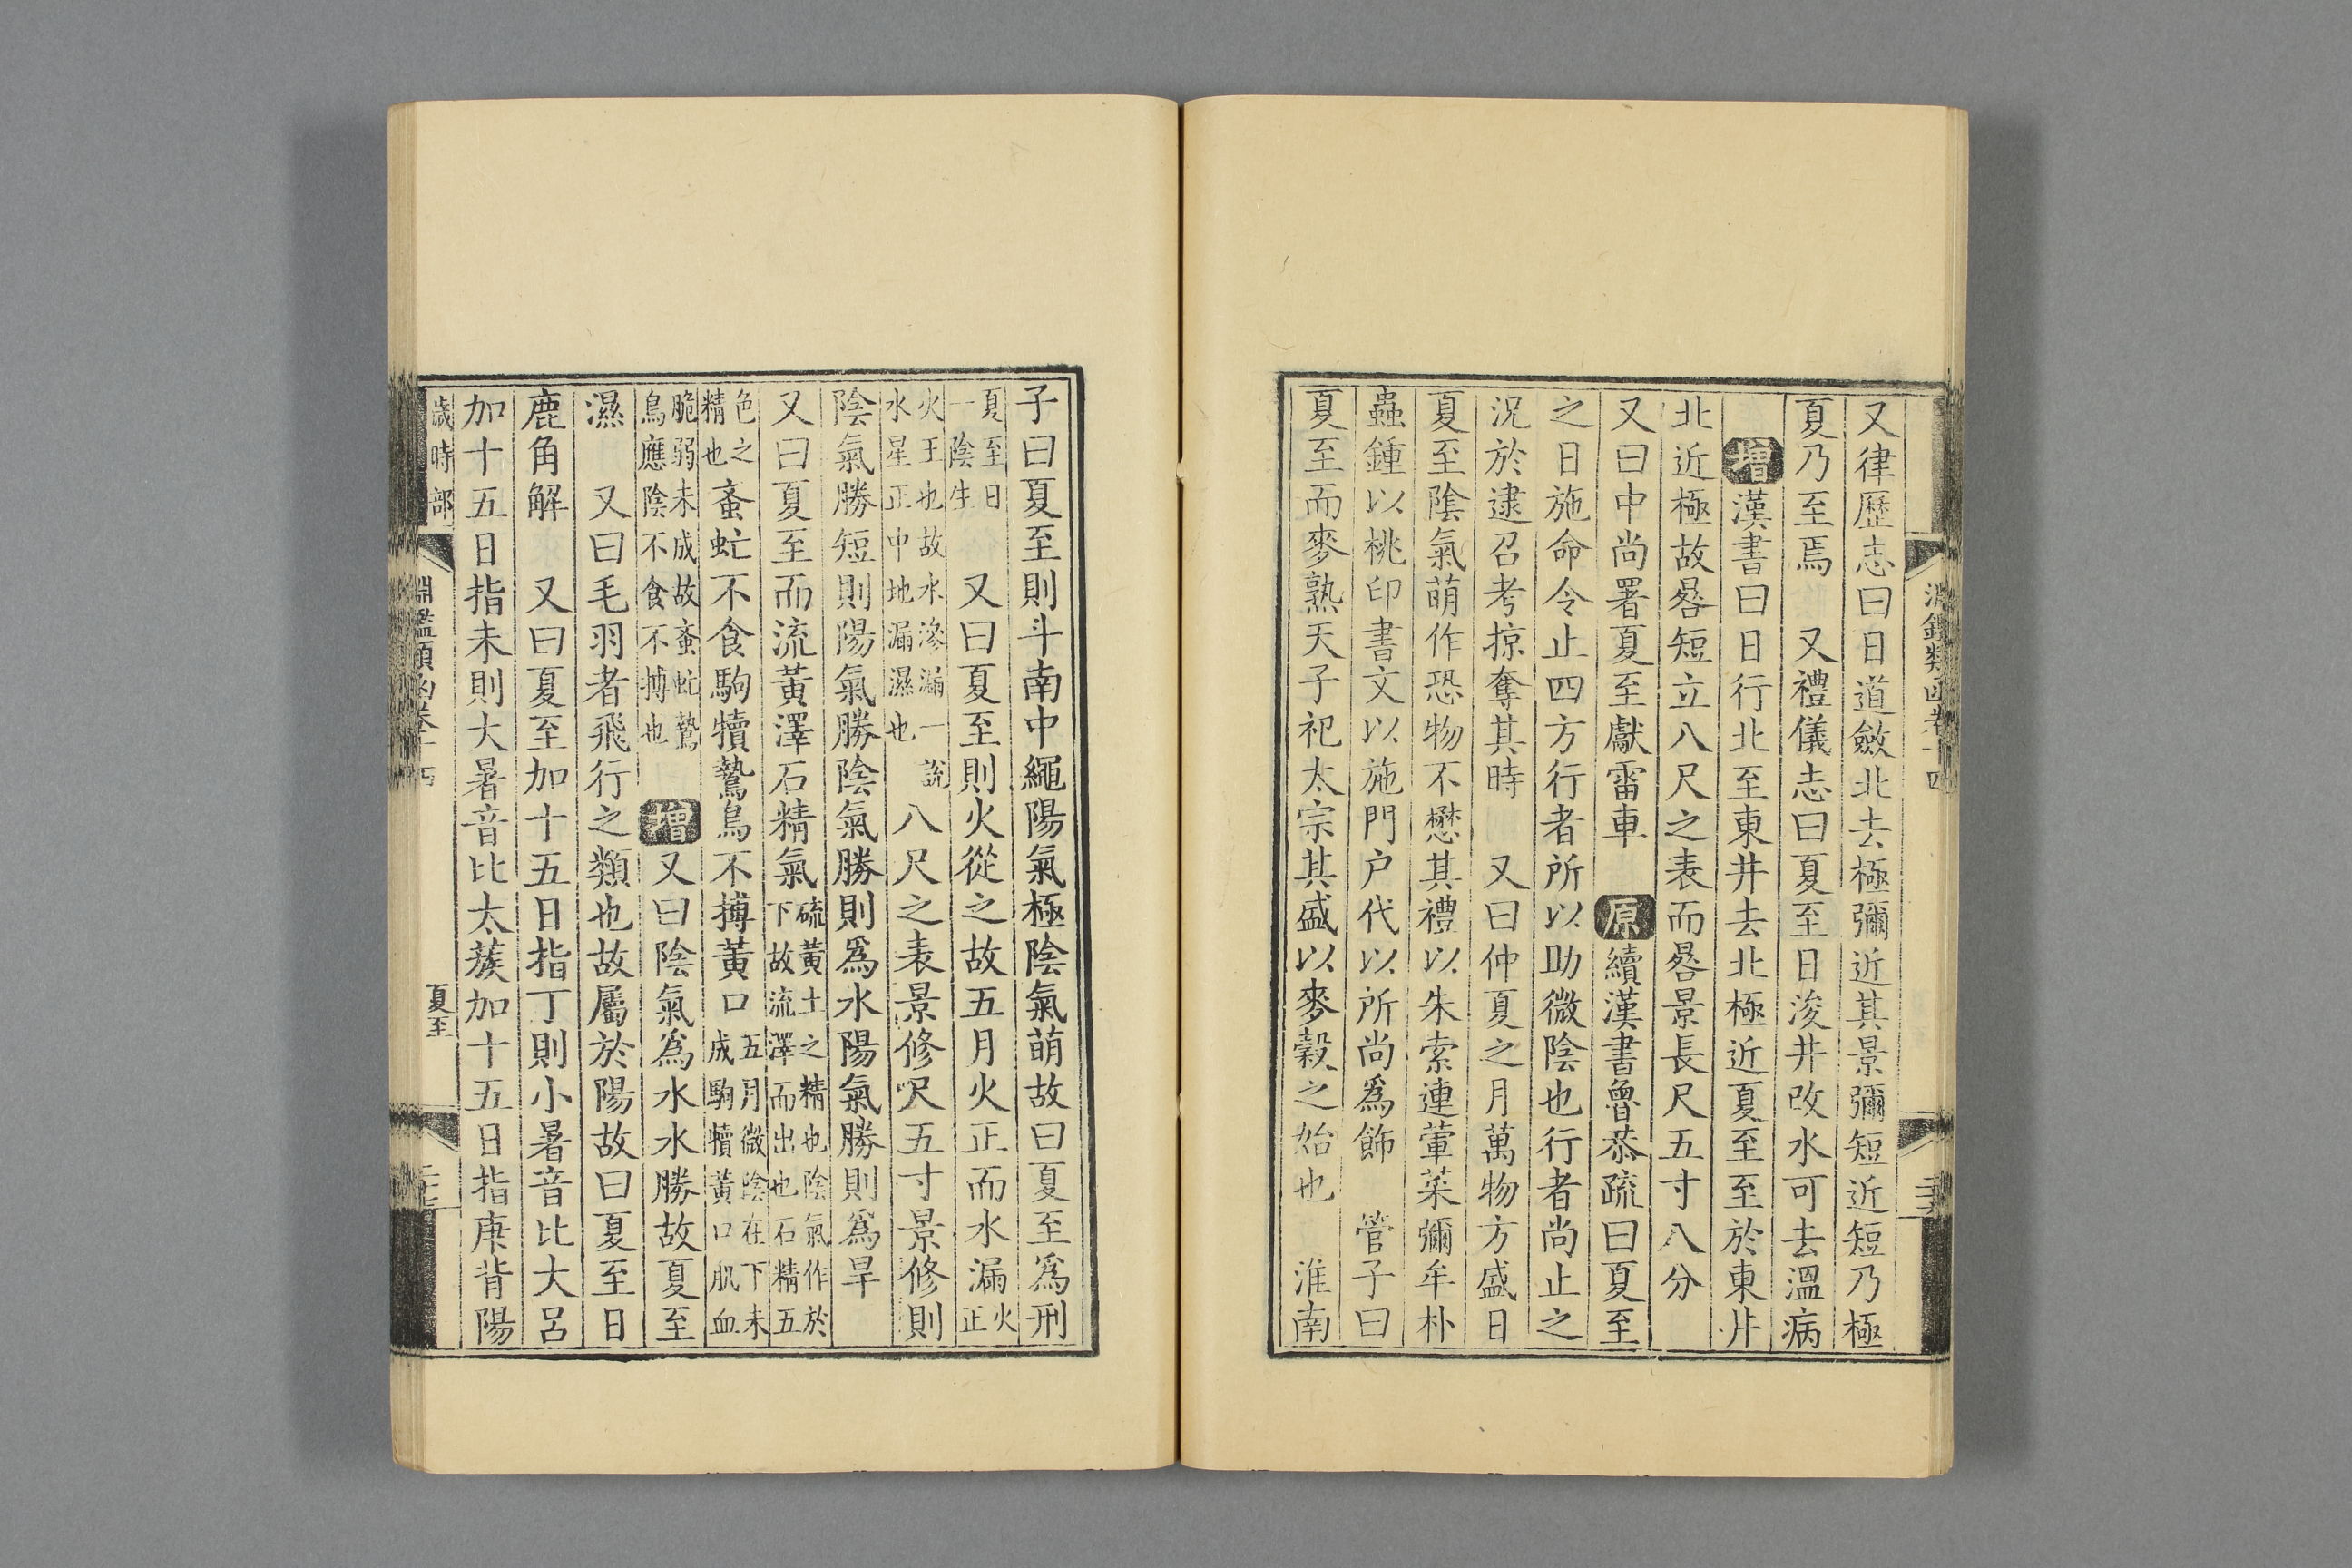 淵鑑類函卷十四
又律歷志曰日道斂北去極彌近其景彌短近短乃極
夏乃至焉　又禮儀志曰夏至日浚井改水可去溫病
增漢書曰日行北至東井去北極近夏至至於東井
北近極故晷短立八尺之表而晷景長尺五寸八分
又曰中尚署夏至獻雷車　原續漢書魯恭疏曰夏至
之日施命令止四方行者所以助微陰也行者尚止之
況於逮召考掠奪其時　又曰仲夏之月萬物方盛日
夏至陰氣萌作恐物不懋其禮以朱索連葷菜彌牟朴
蟲鍾以桃印書文以施門户代以所尚爲飾　管子曰
夏至而麥熟天子祀太宗其盛以麥穀之始也　淮南
子曰夏至則斗南中繩陽氣極陰氣萌故曰夏至爲刑
夏至日一陰生　又曰夏至則火從之故五月火正而水漏火正
火王也故水滲漏一說水星正中地漏濕也八尺之表景修尺五寸景修則
陰氣勝短則陽氣勝陰氣勝則爲水陽氣勝則爲旱
又曰夏至而流黃澤石精氣硫黃土之精也陰氣作於下故流澤而出也石精五
色之精也蚉虻不食駒犢鷙鳥不搏黃口五月微陰在下未成駒犢黃口肌血
脆弱未成故蚉虻鷙鳥應陰不食不搏也　增又曰陰氣爲水水勝故夏至
濕　又曰毛羽者飛行之類也故屬於陽故曰夏至日
鹿角解　又曰夏至加十五日指丁則小暑音比大呂
加十五日指未則大暑音比太蔟加十五日指庚背陽
歲時部　淵鑑類函卷十四　夏至　二十七